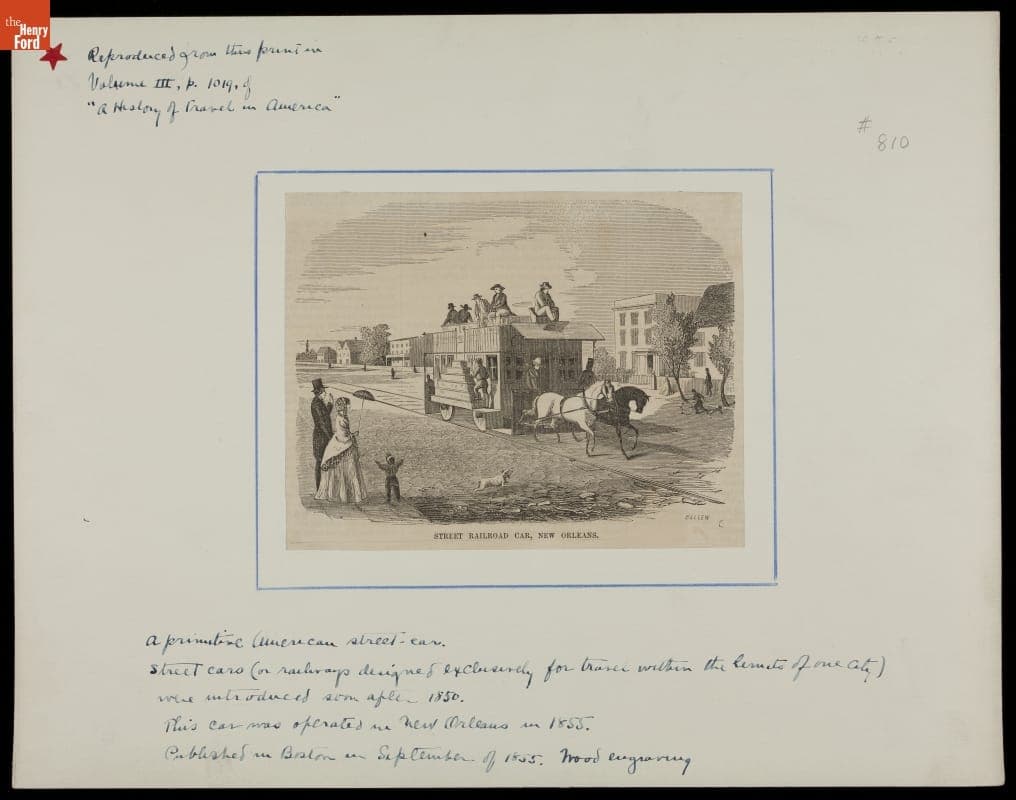 the
Henry
Ford
Reproduced from this print in
Volume III, p. 1019, of
"A History of Travel in America"
#
810
STREET RAILROAD CAR, NEW ORLEANS.
A primitive American street-car.
Street cars (or railways designed exclusively for travel within the limits of one city)
were introduced soon after 1850.
This car was operated in New Orleans in 1855.
Published in Boston in September of 1855. Wood engraving